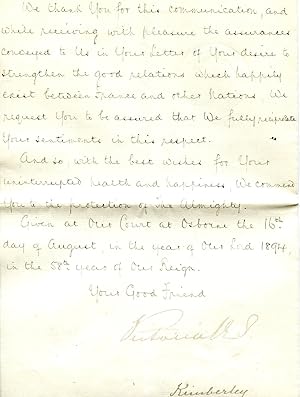 We thank You for this communication, and
while receiving with pleasure the assurances
conveyed to Us in Your Letter of Your desire to
strengthen the good relations which happily
exist between France and other Nations We
request You to be assured that We fully reciprocate
Your sentiments in this respect.
And so with the best wishes for Your
uninterrupted health and happiness, We commend
You to the protection of the Almighty.
Given at Our Court at Osborne the 16th
day of August, in the year of Our Lord 1894,
in the 58th year of Our Reign.
Your Good Friend
Victoria R I
Kimberley